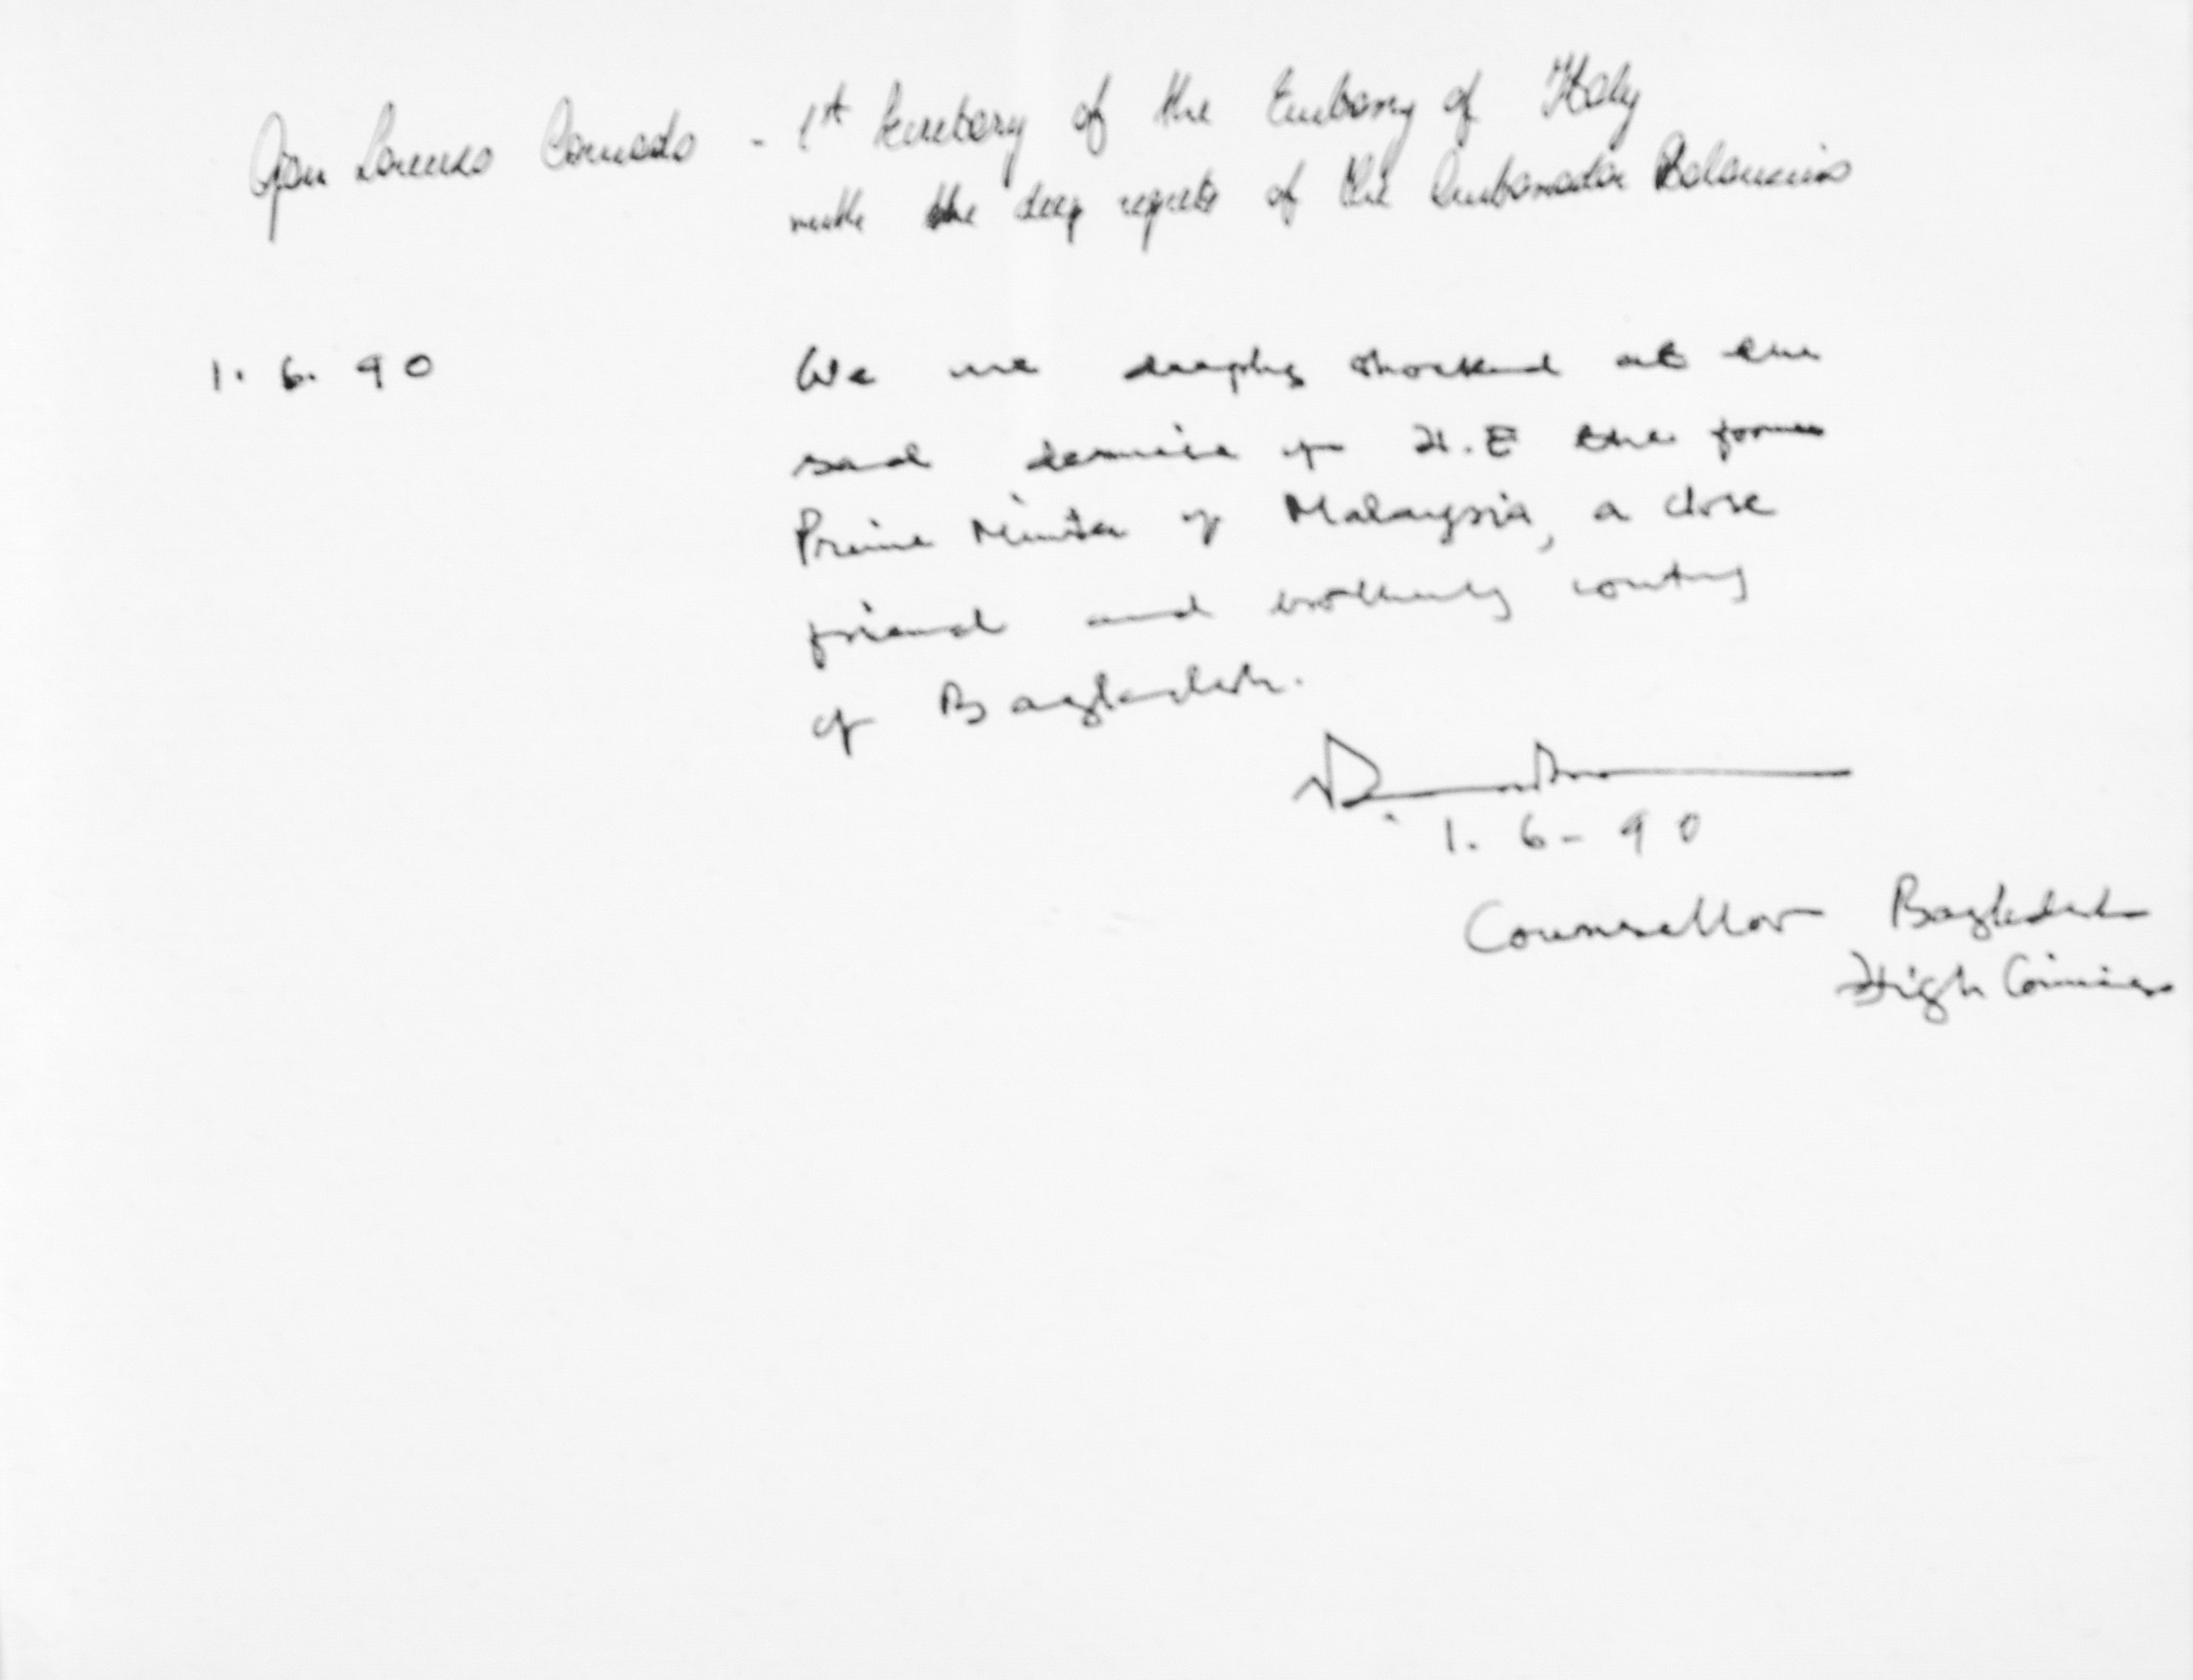 Gian Lorenzo Cornado - 1st Secretary of the Embassy of Italy
with the deep regrets of the Ambassador
1. 6. 90 We are deeply shocked at the
sad demise of H.E the former
Prime Minister of Malaysia, a close
friend and brotherly country
of Bangladesh.
1. 6 - 90
Counsellor Bangladesh
High Commission